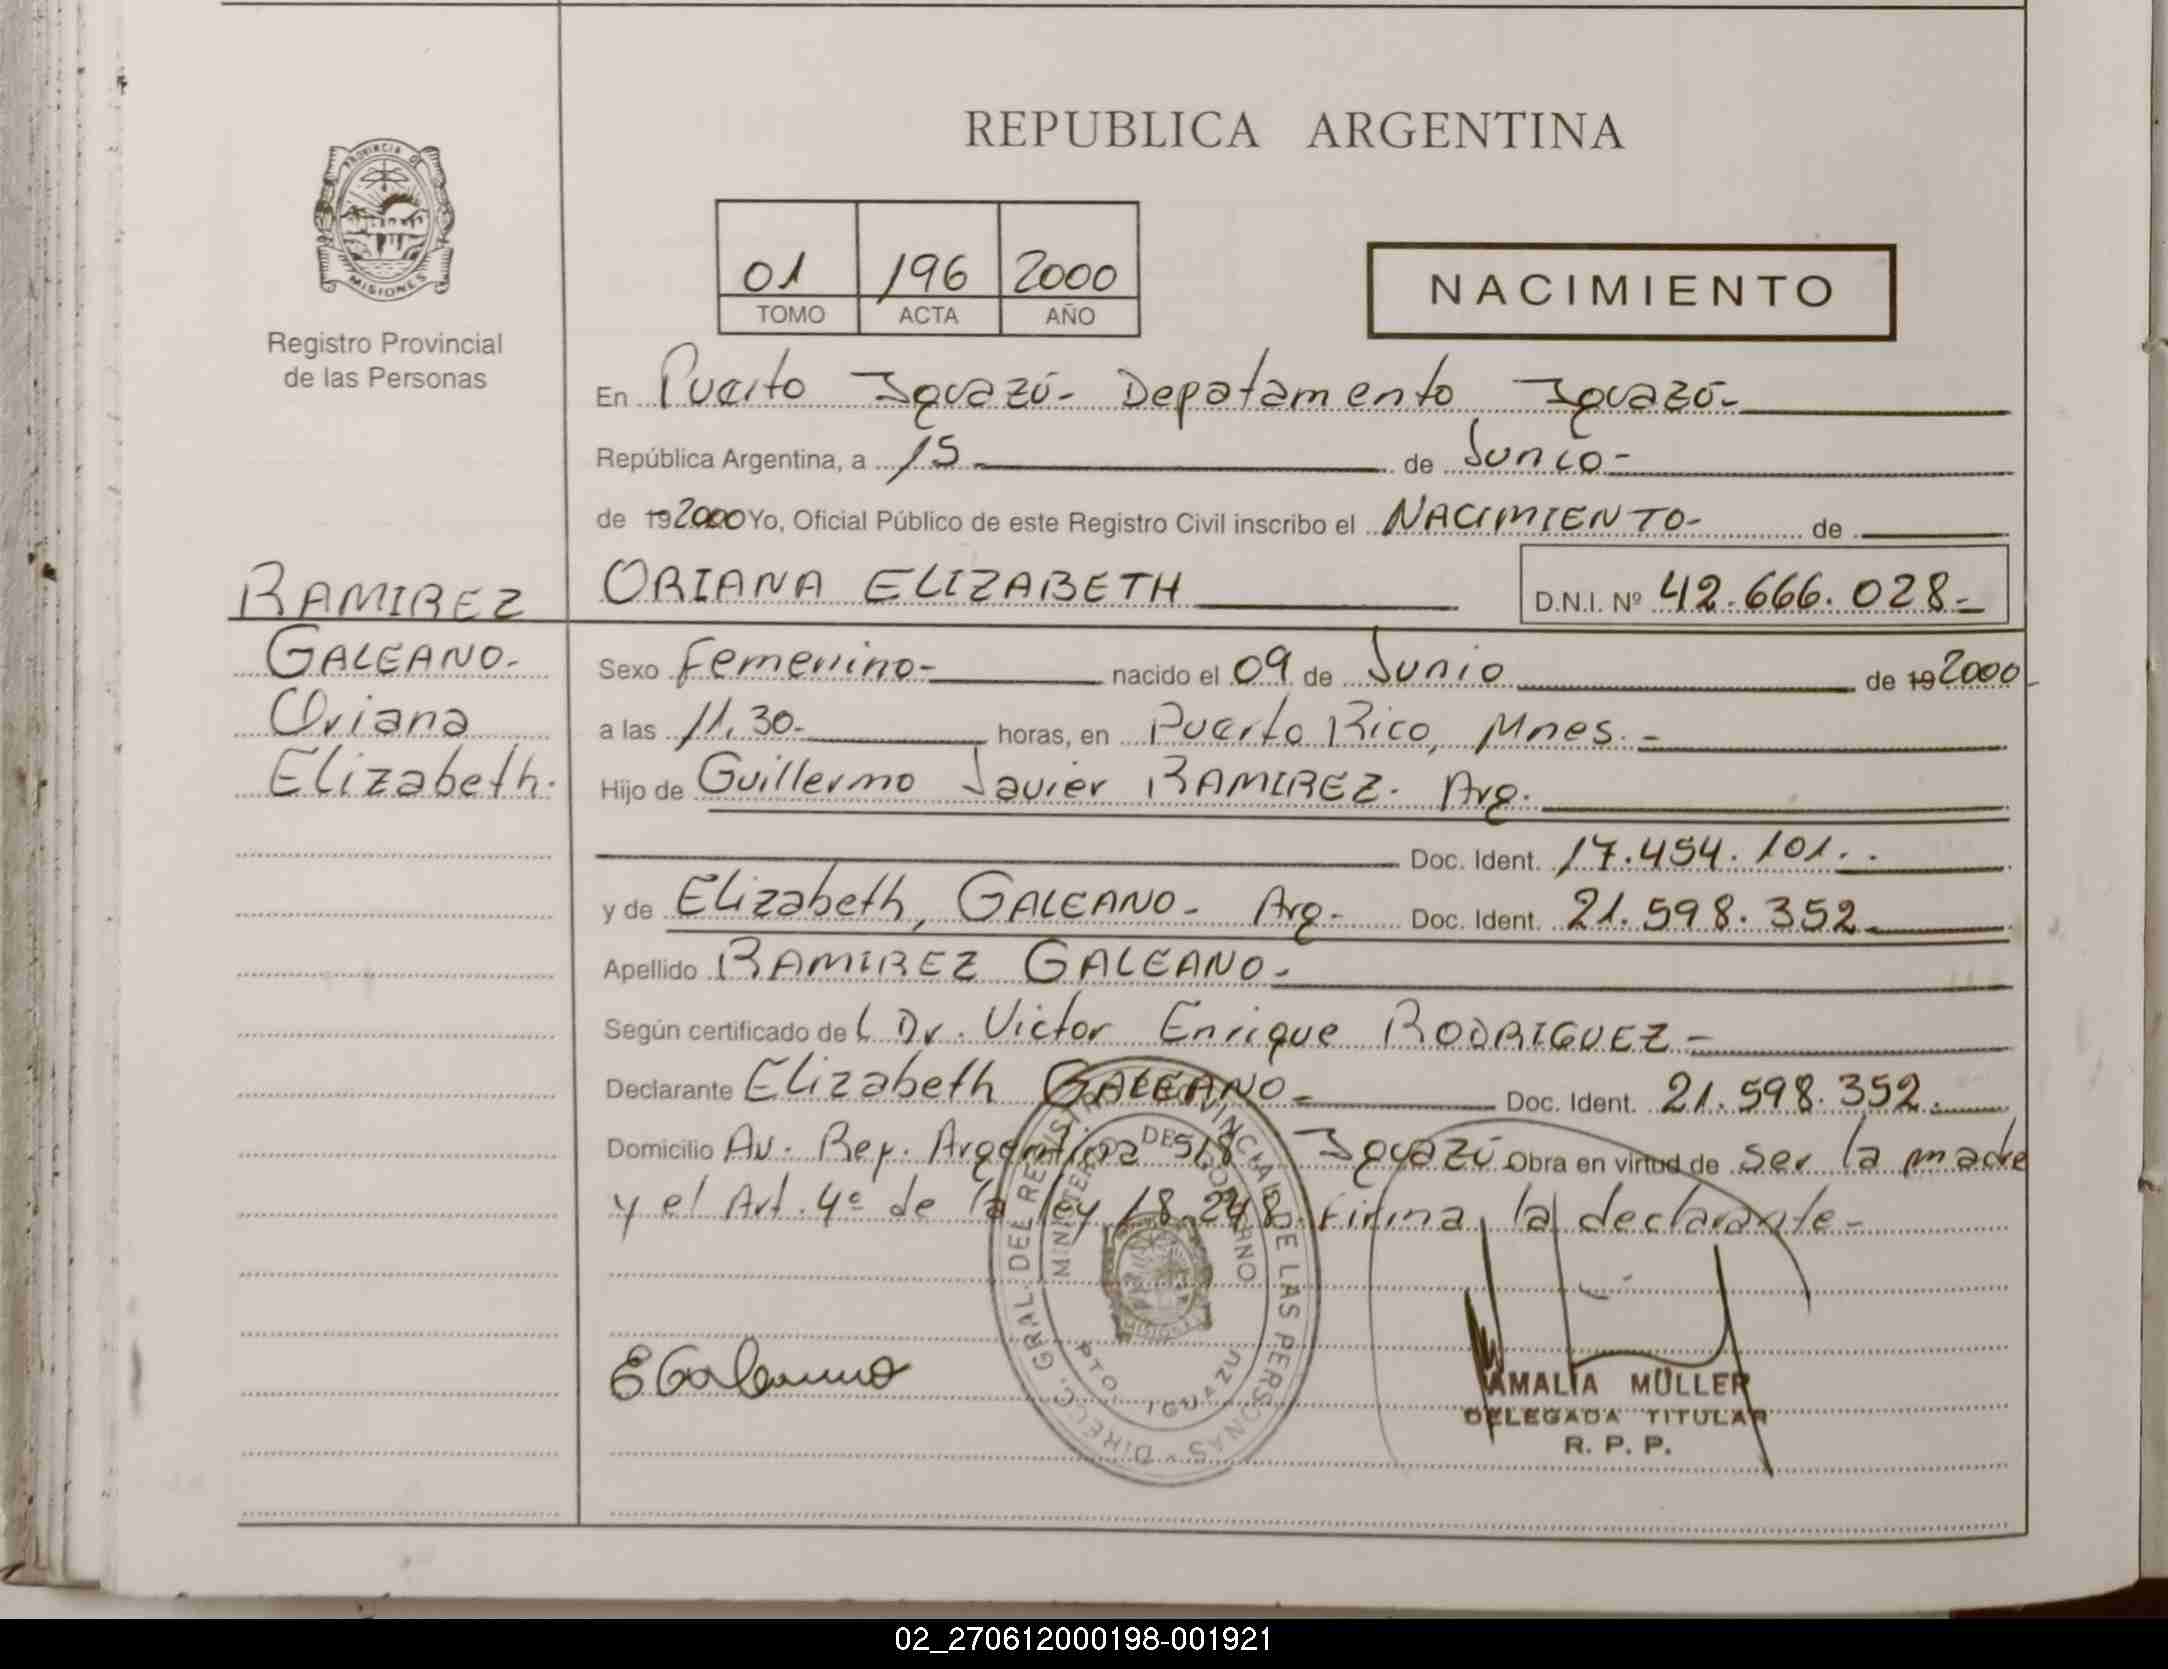 REPUBLICA ARGENTINA
PROVINCIA DE MISIONES
Registro Provincial
de las Personas
01 196 2000
TOMO ACTA AÑO
NACIMIENTO
En Puerto Iguazú- Depatamento Iguazú-
República Argentina, a 15 de Junio-
de 192000 Yo, Oficial Público de este Registro Civil inscribo el NACIMIENTO- de
RAMIREZ
GALEANO-
Oriana
Elizabeth.
ORIANA ELIZABETH D.N.I. Nº 42.666.028-
Sexo Femenino- nacido el 09 de Junio de 19 2000
a las 11.30- horas, en Puerto Rico, Mnes.-
Hijo de Guillermo Javier RAMIREZ. Arg.
Doc. Ident. 17.454.101.
y de Elizabeth, GALEANO- Arg- Doc. Ident. 21.598.352
Apellido RAMIREZ GALEANO-
Según certificado del Dr. Victor Enrique RODRIGUEZ-
Declarante Elizabeth GALEANO- Doc. Ident. 21.598.352.
Domicilio Av. Rep. Argentina 518 Iguazú Obra en virtud de ser la madre
y el Art. 4º de la ley 18.248. Firma la declarante-
DIRECC. GRAL. DEL REGISTRO PROVINCIAL DE LAS PERSONAS
MINISTERIO DE GOBIERNO
PTO. IGUAZU
MISIONES
EGaleano
AMALIA MULLER
DELEGADA TITULAR
R. P. P.
02_270612000198-001921